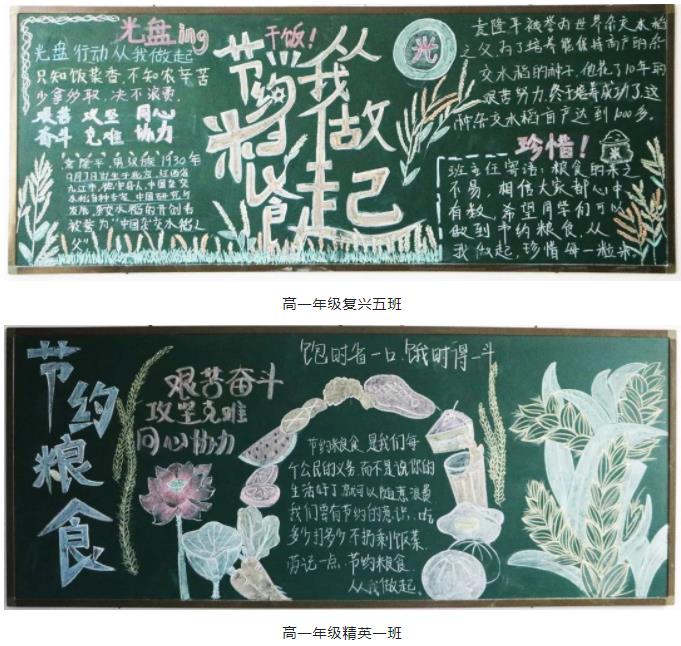 光盘ing
光盘行动从我做起
只知饭菜香,不知农辛苦
少拿多取,决不浪费.
艰苦 攻坚 同心
奋斗 克难 协力
袁隆平,男汉族 1930年
9月7日出生于北京,江西省
被誉为“中国杂交水稻之
父”
干饭!
节约粮食
从我做起
光
袁隆平被誉为世界杂交水稻
之父,为了培养能保持高产的杂
交水稻的种子,他花了10年的
艰苦努力,终于培养成功了,这
种杂交水稻亩产达到1000多.
珍惜!
班主任寄语:粮食的来之
不易,相信大家都心中
有数,希望同学们可以
做到节约粮食,从
我做起,珍惜每一粒米
高一年级复兴五班
节约粮食
艰苦奋斗
攻坚克难
同心协力
饱时省一口,饿时得一斗
节约粮食,是我们每
个公民的义务,而不是说你的
生活好了就可以随意浪费.
我们要有节约的意识,吃
多少打多少不扔剩饭菜.
节约粮食
从我做起.
高一年级精英一班